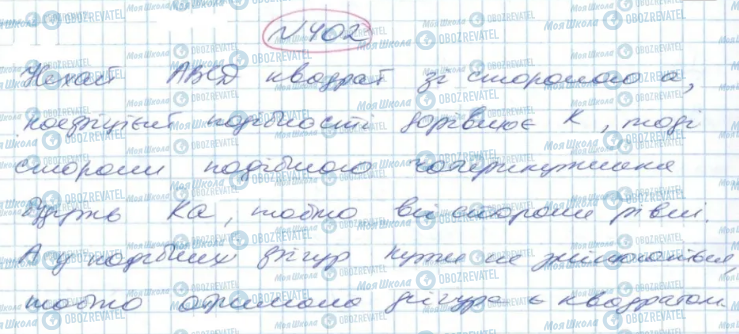 №402
Нехай ABCD квадрат зі стороною a,
коефіцієнт подібності дорівнює K, тоді
сторони подібного чотирикутника
будуть Ka, тобто всі сторони рівні.
А у подібних фігур кути не змінюються,
тобто отримана фігура є квадратом